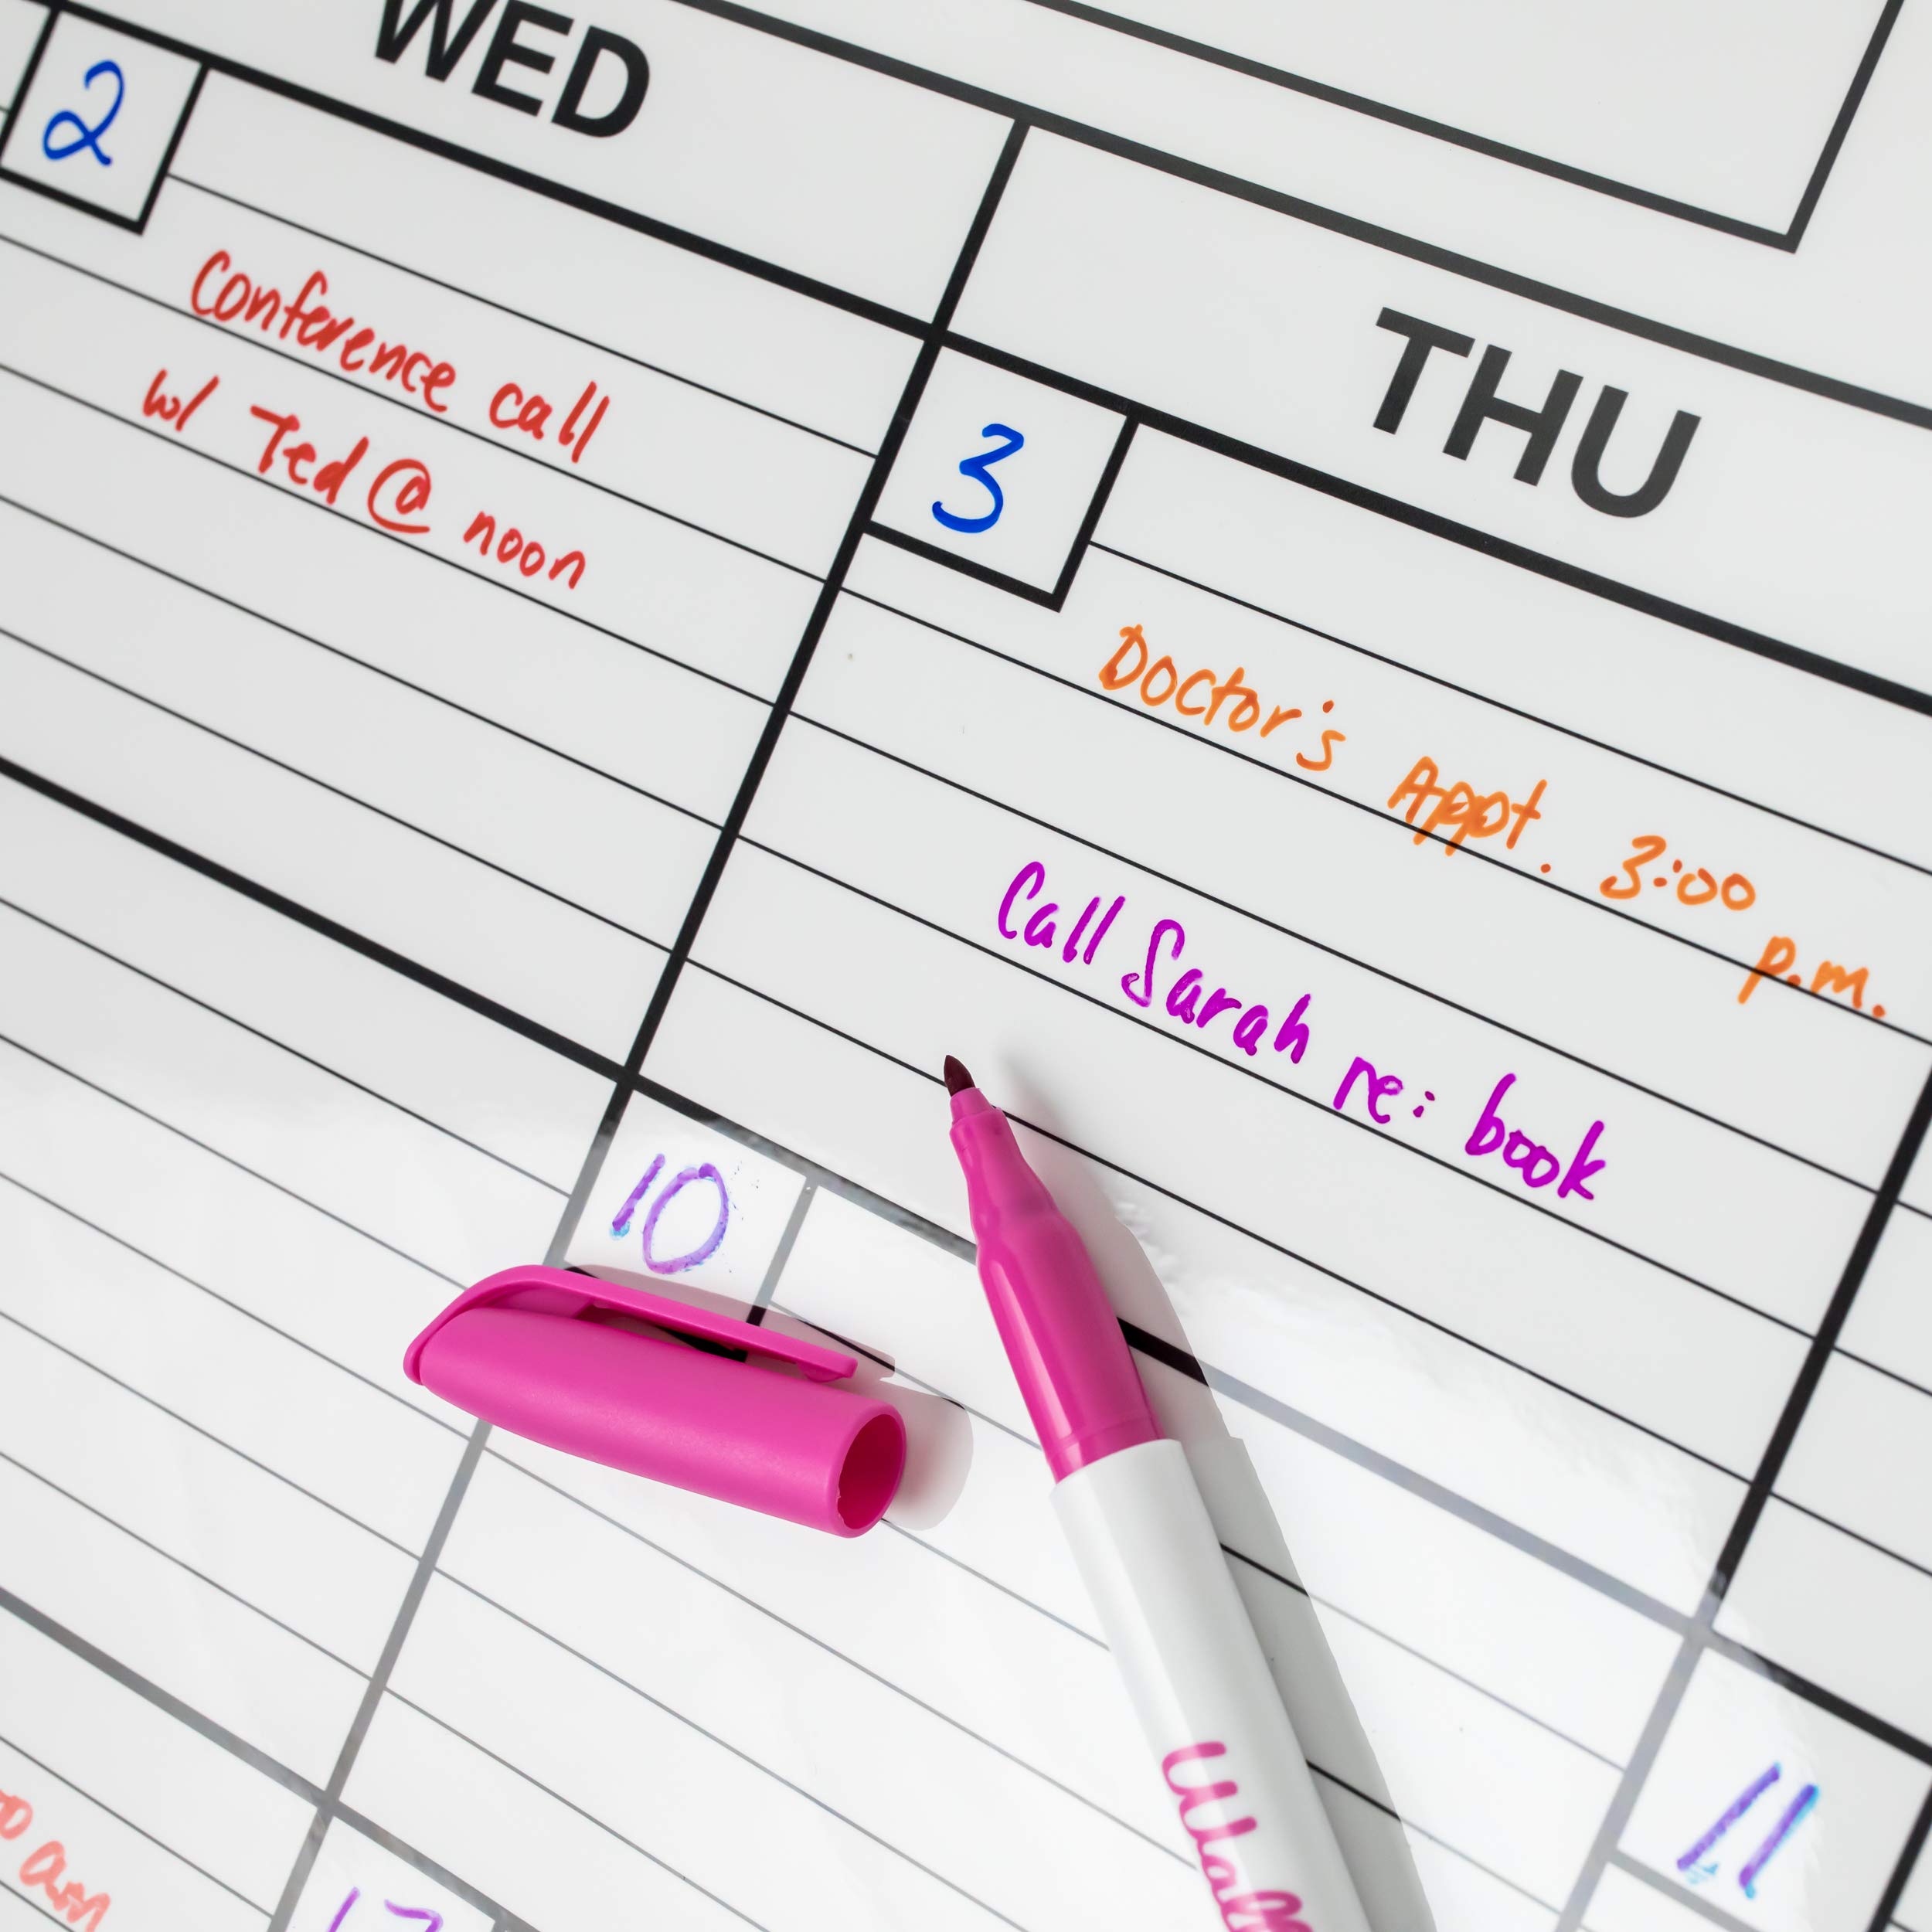 WED
THU
2
Conference call
w/ Ted @ noon
3
Doctor's Appt. 3:00
p.m.
Call Sarah re: book
10
11
am
17